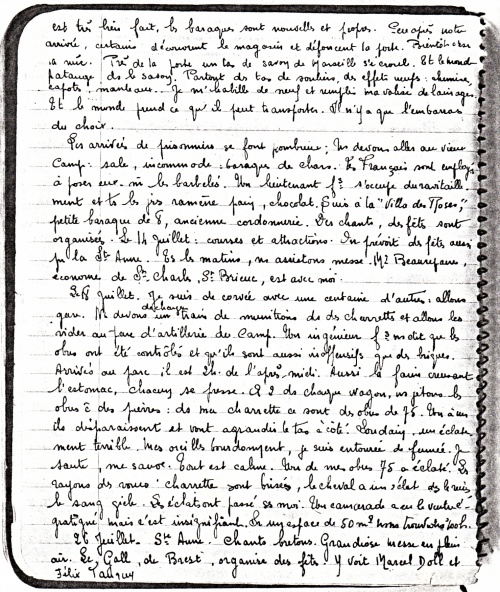 est très bien fait, les baraques sont nouvelles et propres. Peu après notre
arrivée, certains découvrent le magasin et défoncent la porte. Bientôt c'est
la ruée. Près de la porte un tas de savon de Marseille s'écroule. Et le monde
patauge ds le savon. Partout des tas de souliers, des effets neufs : chemises,
capotes, manteaux. Je m'habille de neuf et remplis ma valise de lainages.
Et le monde prend ce qu'il peut transporter. Il n'y a que l'embarras
du choix.
Les arrivées de prisonniers se font nombreuses ; Ns devons aller au vieux
Camp : sale, incommode : baraques de chars. Les Français sont employés
à poser eux-m les barbelés. Un lieutenant fs s'occupe du ravitaille
ment et ts les jrs ramène pain, chocolat. Puis à la "Villa des Roses",
petite baraque de 8, ancienne cordonnerie. Des chants, des fêtes sont
organisés. Le 14 Juillet : courses et attractions. On prévoit des fêtes aussi
pr la Ste Anne. Ts les matins, ns assistons messe. Mr Beaurepaire,
économe de St Charles, St Brieuc, est avec moi.
Juillet. Je suis de corvée avec une centaine d'autres : allons
gare. Ns devons décharger un train de munitions ds des charrettes et allons les
vider au parc d'artillerie du Camp. Un ingénieur fs ns dit que les
obus ont été contrôlés et qu'ils sont aussi inoffensifs que des briques.
Arrivés au parc, il est 2h. de l'après-midi. Aussi la faim creusant
l'estomac, chacun se presse. A 2 ds chaque wagon, ns jetons les
obus des pierres : ds ma charrette ce sont des obus de 75. Un à un
ils disparaissent et vont agrandir le tas à côté. Soudain, un éclate
ment terrible. Mes oreilles bourdonnent, je suis entouré de fumée. Je
saute, me sauve. Tout est calme. Un de mes obus 75 a éclaté. Les
rayons des roues charrette sont brisés, le cheval a un éclat ds le
le sang gicle. Les éclats ont passé ss moi. Un camarade a eu le ventre é-
gratigné, mais c'est insignifiant. Sur un espace de 50 m2 nous
26 Juillet. Ste Anne. Chants bretons. Grandiose messe en plein
air. Le Gall, de Brest, organise des fêtes. Y voit Marcel Doll et
Félix Tanguy